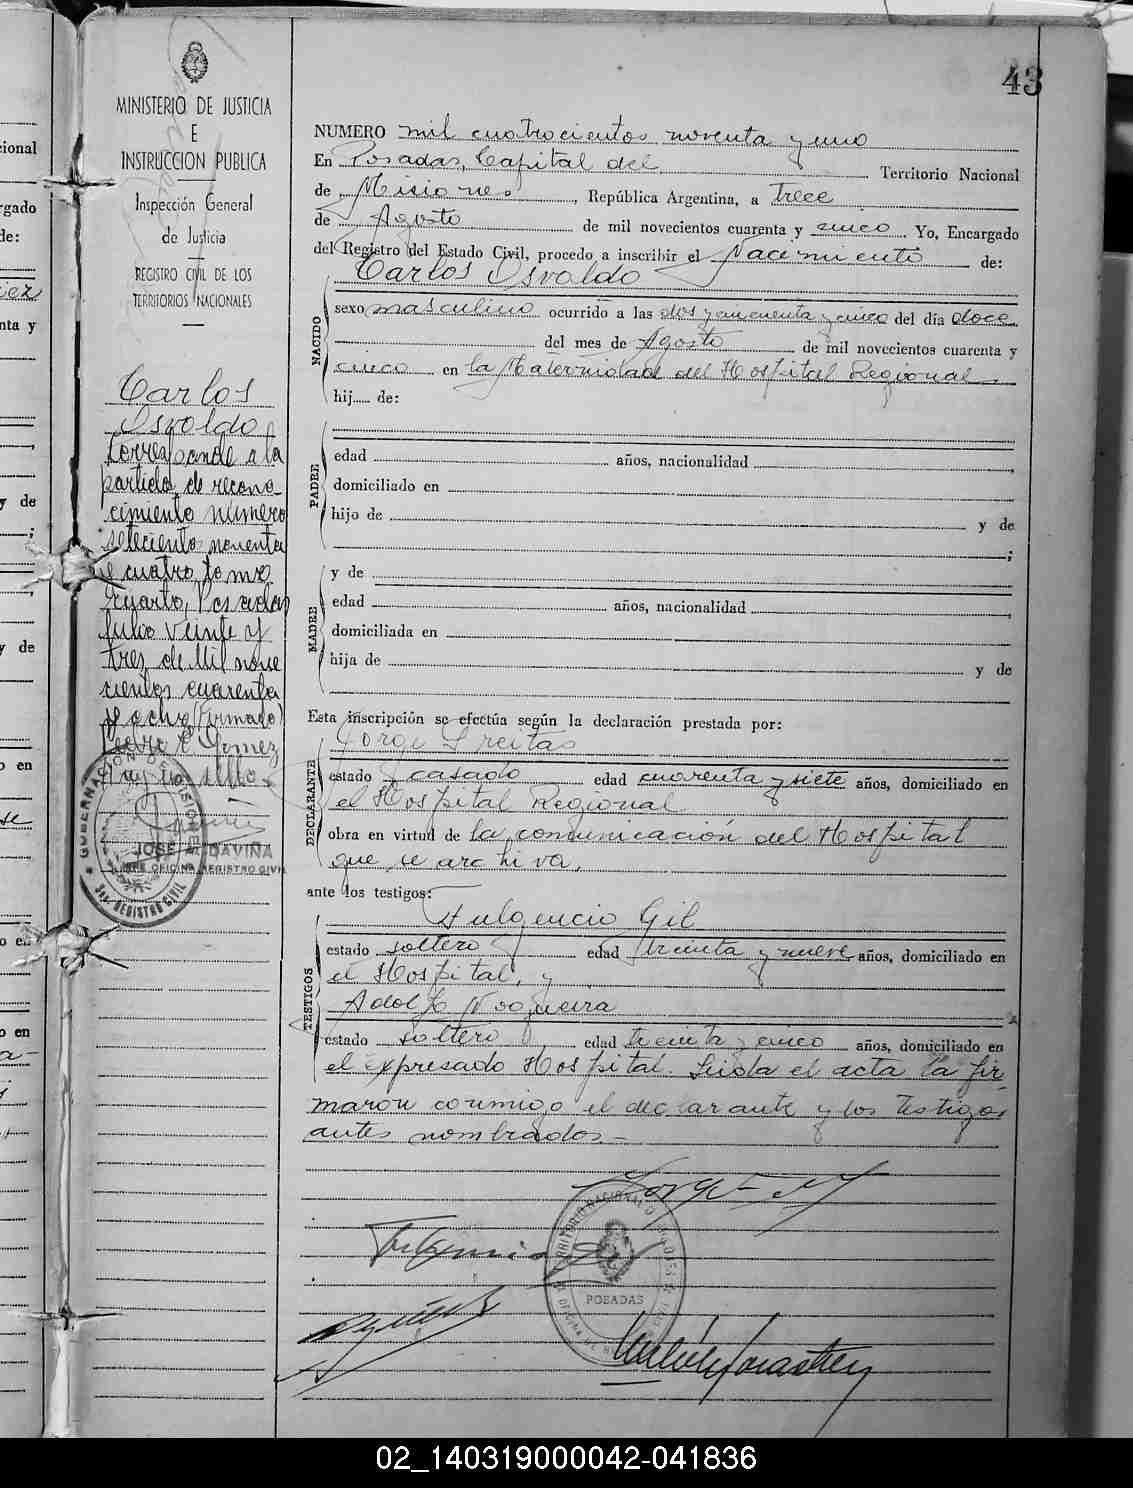 43
MINISTERIO DE JUSTICIA
E
INSTRUCCION PUBLICA
Inspección General
de Justicia
REGISTRO CIVIL DE LOS
TERRITORIOS NACIONALES
Carlos
Osvaldo
Corresponde a la
partida de recono-
cimiento número
setecientos noventa
e cuatro, tomo
cuarto, Posadas
Julio veinte y
tres de mil nove
cientos cuarenta
y ocho (Firmado)
Gomez
Hay un sello
JOSÉ DAVIÑA
JEFE OFICINA REGISTRO CIVIL
NUMERO mil cuatrocientos noventa y uno
En Posadas, Capital del Territorio Nacional
de Misiones, República Argentina, a trece
de Agosto de mil novecientos cuarenta y cinco Yo, Encargado
del Registro del Estado Civil, procedo a inscribir el Nacimiento de:
Carlos Osvaldo
NACIDO
sexo masculino ocurrido a las dos y cincuenta y cinco del día doce
del mes de Agosto de mil novecientos cuarenta y
cinco en la Maternidad del Hospital Regional
hij..... de:
PADRE
edad años, nacionalidad ,
domiciliado en
hijo de y de
;
MADRE
y de
edad años, nacionalidad ,
domiciliada en
hija de y de
Esta inscripción se efectúa según la declaración prestada por:
DECLARANTE
Jorge Freitas
estado casado edad cuarenta y siete años, domiciliado en
el Hospital Regional
obra en virtud de la comunicación del Hospital
que se archiva.
ante los testigos:
TESTIGOS
Fulgencio Gil
estado soltero edad treinta y nueve años, domiciliado en
el Hospital, y
Adolfo Nogueira
estado soltero edad treinta y cinco años, domiciliado en
el expresado Hospital. Leida el acta la fir-
maron conmigo el declarante y los testigos
antes nombrados.-
POSADAS
02_140319000042-041836